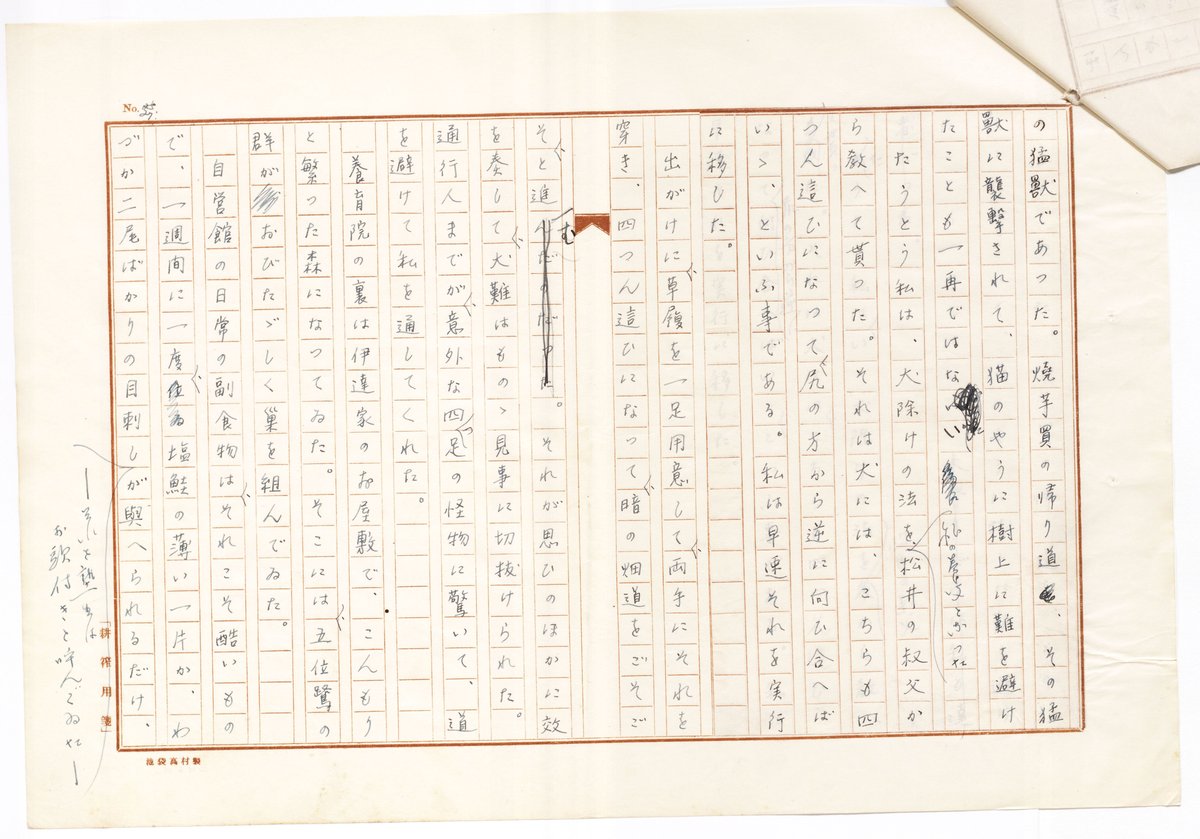 の猛獣であつた。焼芋買の帰り道、その猛
獣に襲撃されて、猫のやうに樹上に難を避け
たことも一再ではない
たうとう私は、犬除けの法を松井の叔父か
ら教へて貰った。それは犬には、こちらも四
つん這ひになつて尻の方から逆に向ひ合へば
いゝ、といふ事である。私は早速それを実行
に移した。
出がけに草履を一足用意して両手にそれを
穿き、四つん這ひになつて暗の畑道をごそご
そと進む。それが思ひのほかに效
を奏して犬難はものゝ見事に切抜けられた。
通行人までが意外な四つ足の怪物に驚いて、道
を避けて私を通してくれた。
養育院の裏は伊達家のお屋敷で、こんもり
と繁つた森になつてゐた。そこには五位鷺の
群がおびたゞしく巣を組んでゐた。
自営館の日常の副食物はそれこそ酷いもの
で、一週間に一度塩鮭の薄い一片か、わ
づか二尾ばかりの目刺しが與へられるだけ、
―それを塾では
お歌付きと呼んでゐた―
No.
「耕宵用箋」
池袋高村製